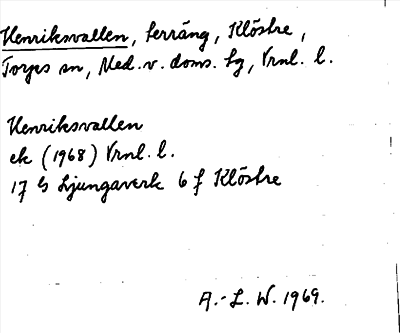 Henriksvallen, terräng, Klöstre,
Torps sn, Med. v. doms. lg, Vrnl. l.
Henriksvallen
ek (1968) Vrnl. l.
17 G Ljungaverk 6 f Klöstre
A.-L. W. 1969.